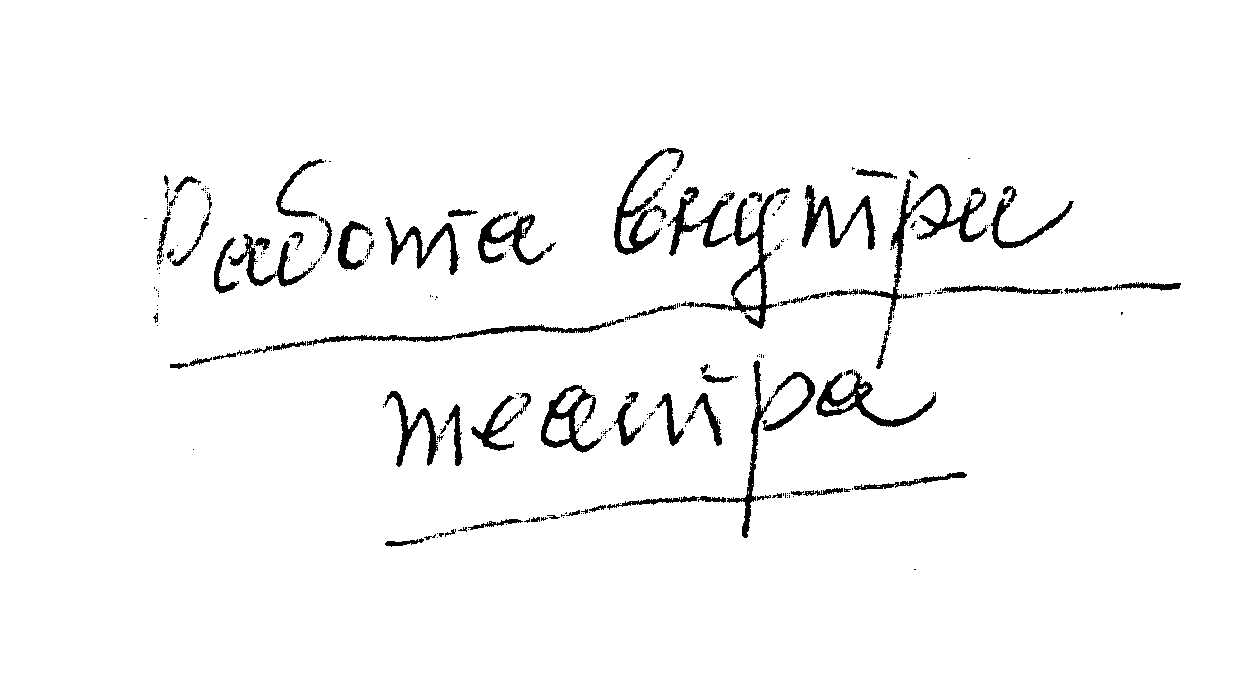 Работа внутри
театра